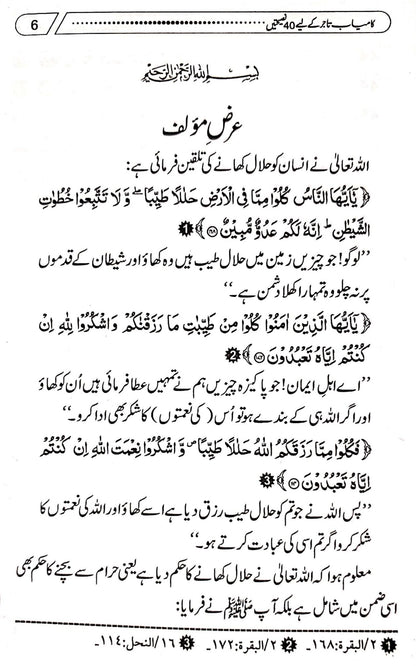 کامیاب تاجر کے لیے 40 نصیحتیں
6
بِسْمِ اللّٰہِ الرَّحْمٰنِ الرَّحِیْمِ
عرضِ مؤلف
اللہ تعالیٰ نے انسان کو حلال کھانے کی تلقین فرمائی ہے:
﴿ یٰۤاَیُّهَا النَّاسُ كُلُوْا مِمَّا فِی الْاَرْضِ حَلٰلًا طَیِّبًا ۖ٘ وَّ لَا تَتَّبِعُوْا خُطُوٰتِ
الشَّیْطٰنِ ؕ اِنَّهٗ لَكُمْ عَدُوٌّ مُّبِیْنٌ ﴾ ❶
’’لوگو! جو چیزیں زمین میں حلال طیب ہیں وہ کھاؤ اور شیطان کے قدموں
پر نہ چلو وہ تمہارا کھلا دشمن ہے۔‘‘
﴿ یٰۤاَیُّهَا الَّذِیْنَ اٰمَنُوْا كُلُوْا مِنْ طَیِّبٰتِ مَا رَزَقْنٰكُمْ وَ اشْكُرُوْا لِلّٰهِ اِنْ
كُنْتُمْ اِیَّاهُ تَعْبُدُوْنَ ﴾ ❷
’’اے اہلِ ایمان! جو پاکیزہ چیزیں ہم نے تمہیں عطا فرمائی ہیں اُن کو کھاؤ
اور اگر اللہ ہی کے بندے ہو تو اُس (کی نعمتوں) کا شکر بھی ادا کرو۔‘‘
﴿ فَكُلُوْا مِمَّا رَزَقَكُمُ اللّٰهُ حَلٰلًا طَیِّبًا ۪ وَّ اشْكُرُوْا نِعْمَتَ اللّٰهِ اِنْ كُنْتُمْ
اِیَّاهُ تَعْبُدُوْنَ ﴾ ❸
’’پس اللہ نے جو تم کو حلال طیب رزق دیا ہے اسے کھاؤ اور اللہ کی نعمتوں کا
شکر کرو اگر تم اسی کی عبادت کرتے ہو۔‘‘
معلوم ہوا کہ اللہ تعالیٰ نے حلال کھانے کا حکم دیا ہے یعنی حرام سے بچنے کا حکم بھی
اسی ضمن میں شامل ہے بلکہ آپ ﷺ نے فرمایا:
❶ ۲/البقرة: ۱۶۸۔ ❷ ۲/البقرة: ۱۷۲۔ ❸ ۱۶/النحل: ۱۱۴۔